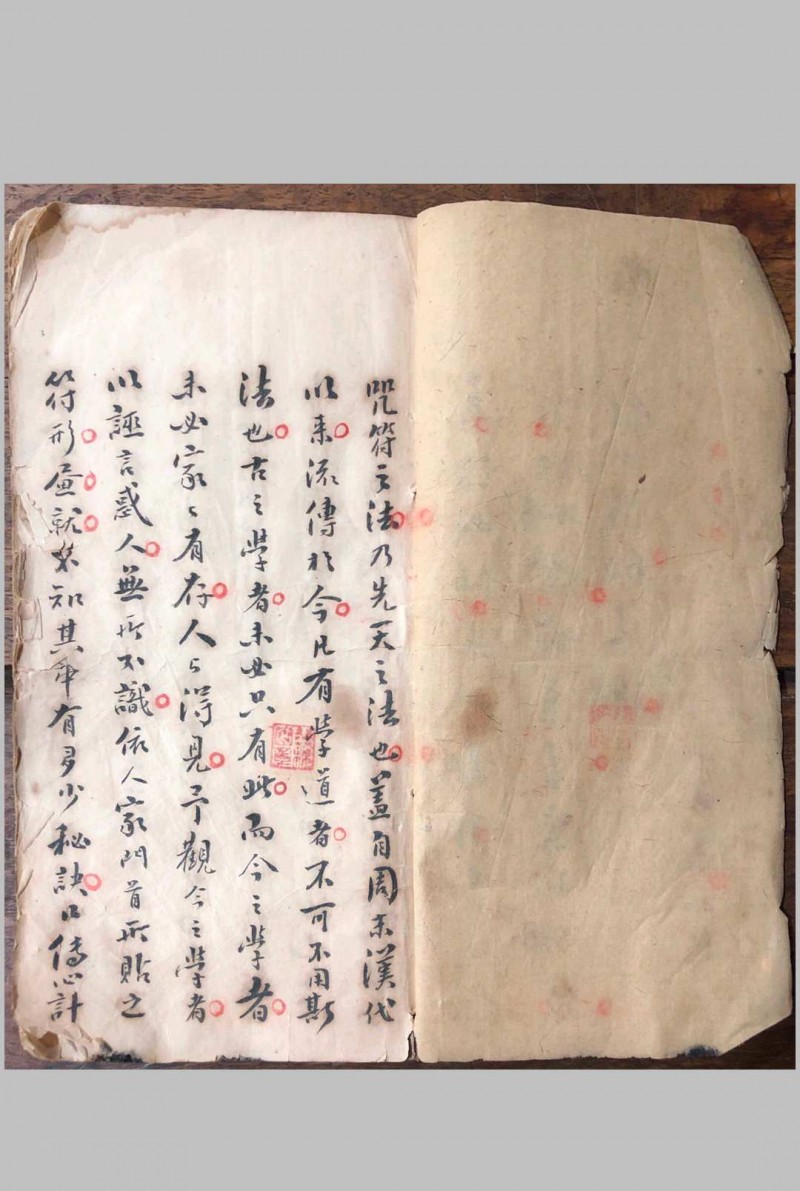 咒符之法乃先天之法也蓋自周末漢代
以來流傳於今凡有學道者不可不用斯
法也古之學者未必只有此而今之學者
未必家々有存人々得見予觀今之學者
以誣言惑人無所不識依人家門首所貼之
符形就知其中有多少秘訣口傳心計